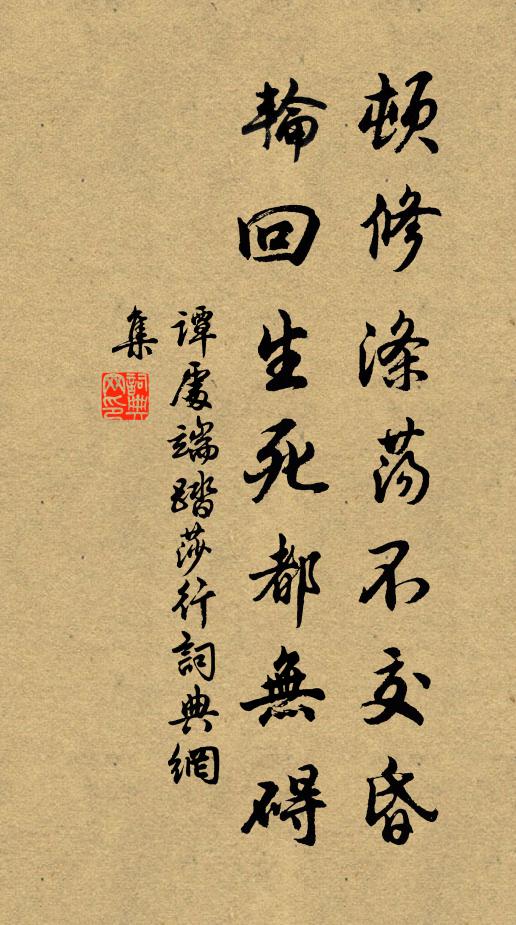 頓修滌蕩不交昏
輪回生死都無碍
譚處端踏莎行詞典網
集
詞典網印